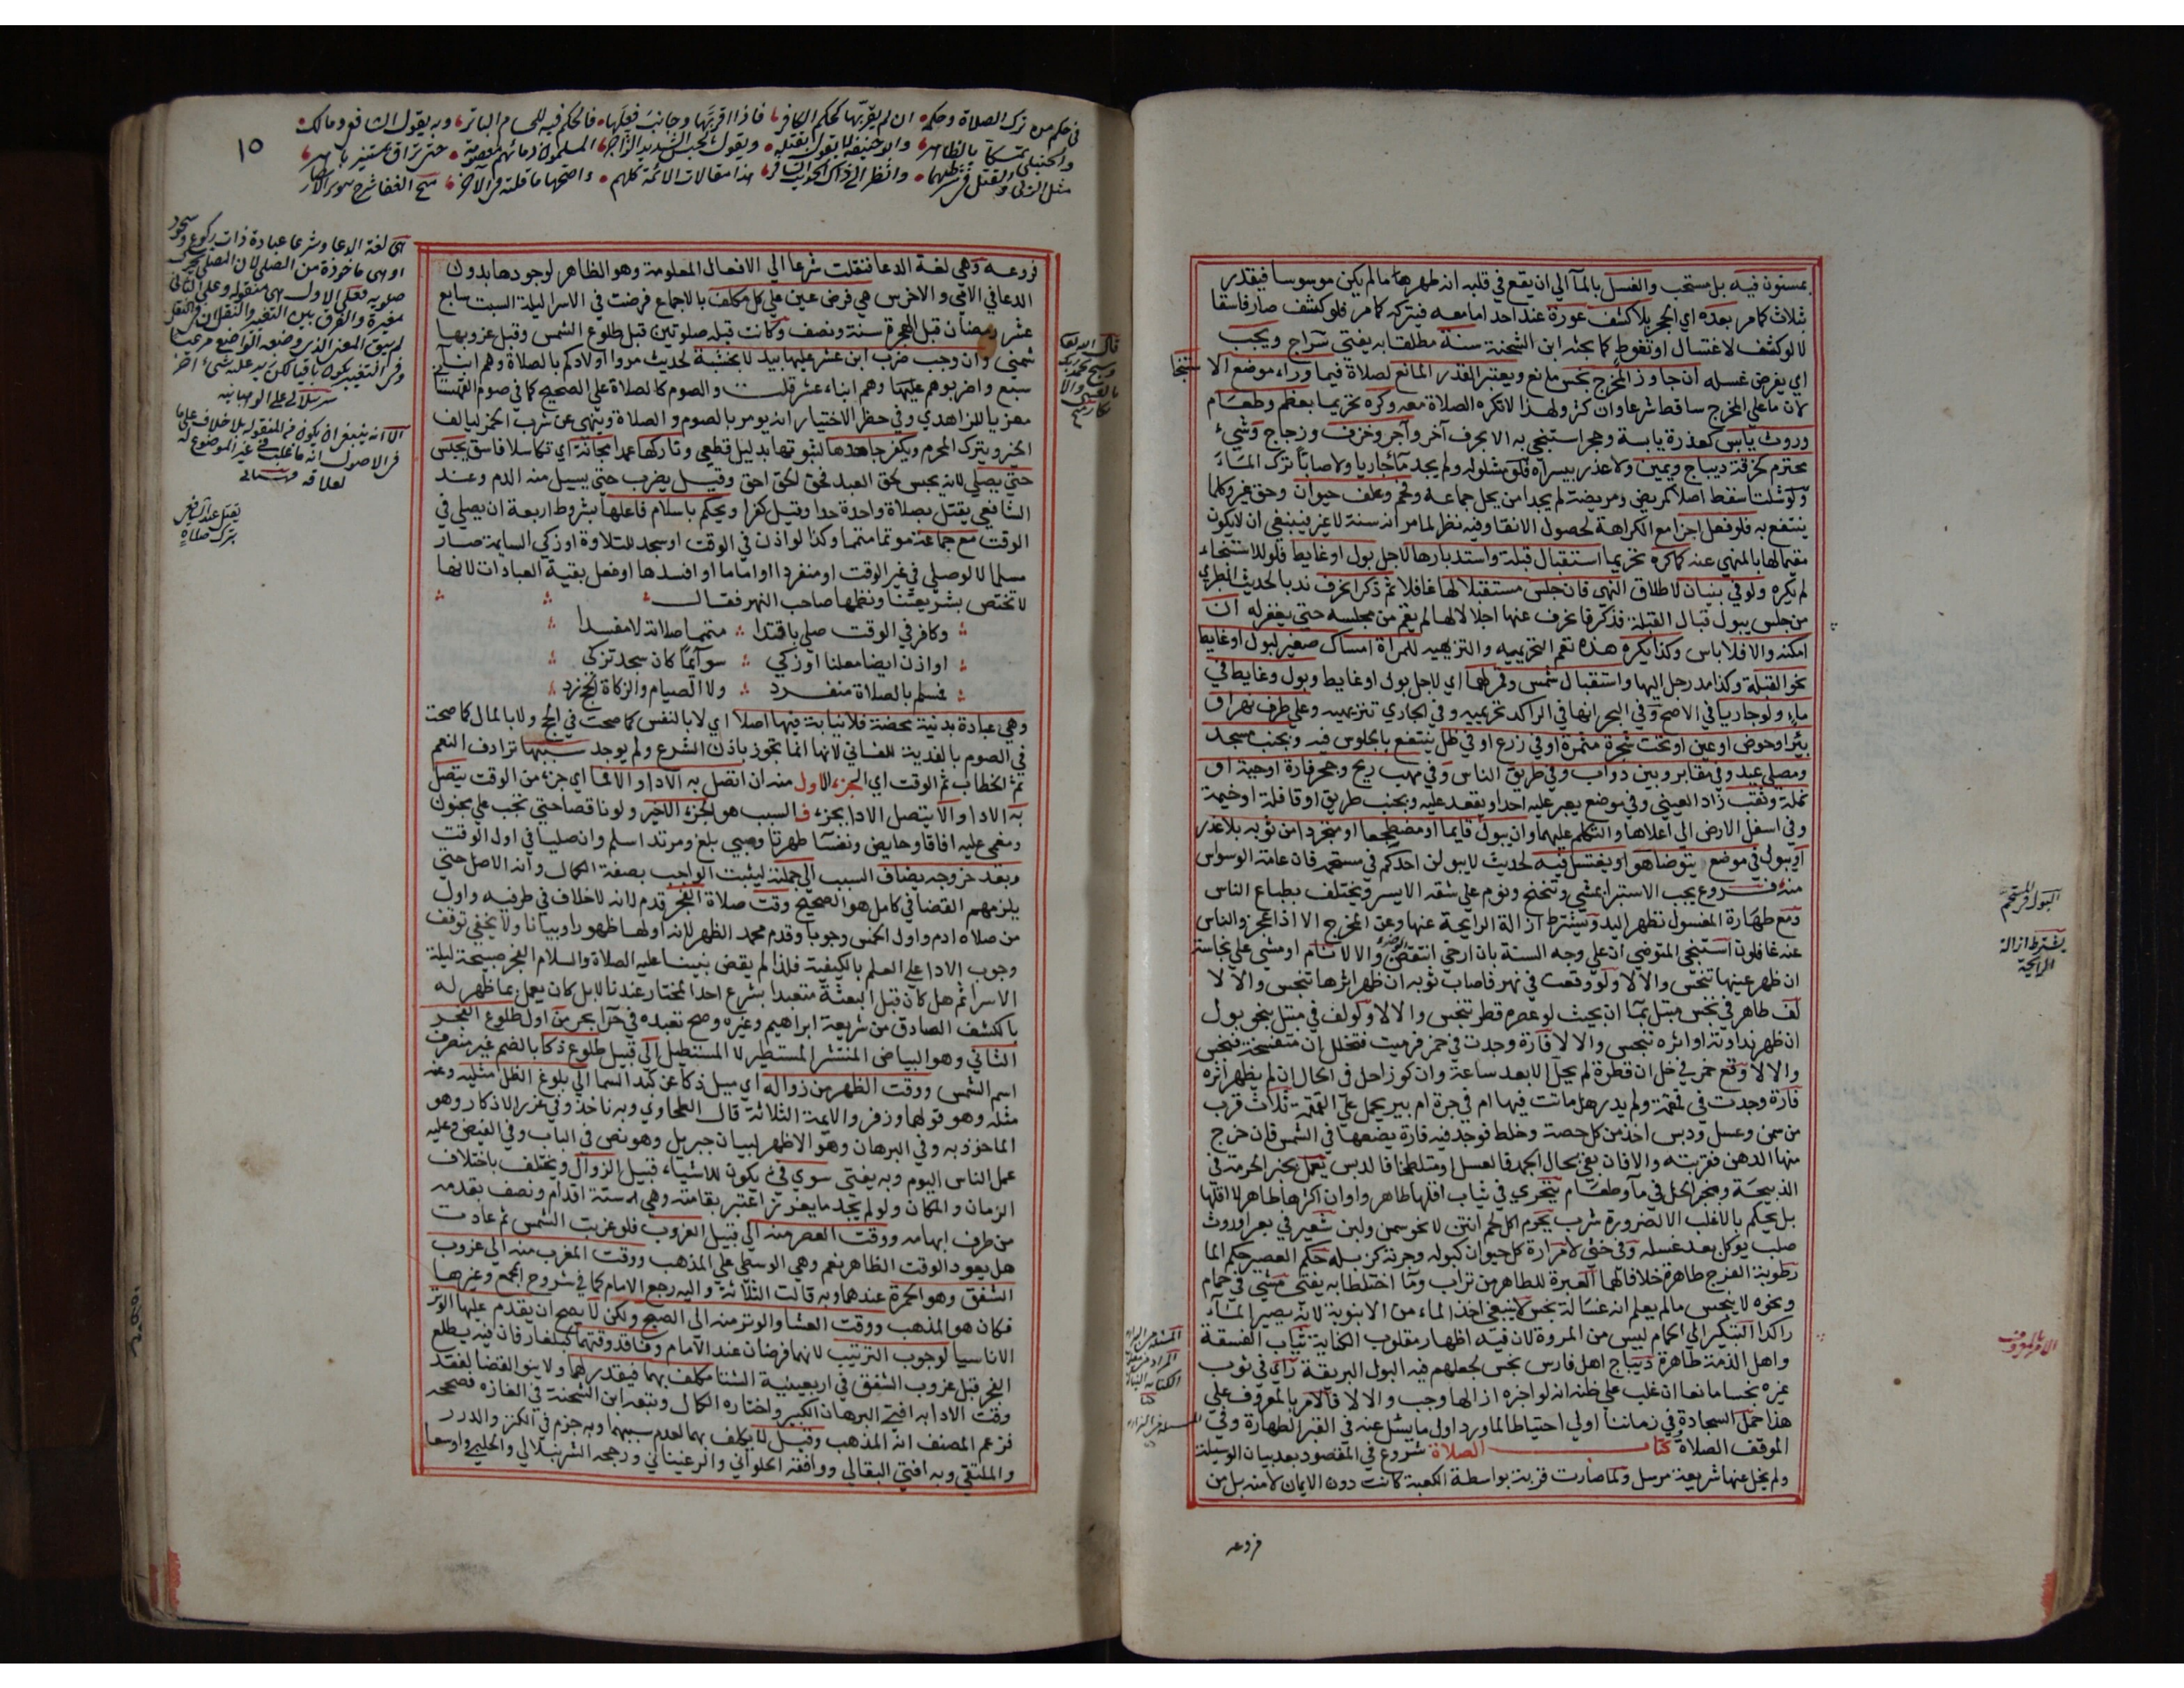 بمسنون فيه بل مستحب والغسل بالماء الي ان يقع في قلبه انه طهرها مالم يكن موسوسا فيقدر
بثلاث كامر بعده اي الحجر بلا كشف عورة عند احد اما معه فيتركه كامر فلو كشف صار فاسقا
لا لو كشف لاغتسال او تغوط كما بحثه ابن الشحنة سنة مطلقا به يفتي سراج ويجب
اي يفرض غسله ان جاوز المخرج نجس مانع ويعتبر القدر المانع لصلاة فيما وراء موضع الا ستنجا
لان ما علي المخرج ساقط شرعا وان كثر ولهذا لا تكره الصلاة معه وكره تحريما بعظم وطعام
وروث يابس كعذرة يابسة وحجر استنجي به الا بحرف آخر وآجر وخزف وزجاج وشيء
محترم كخرقة ديباج ويمين ولا عذر بيسراه فلو مشلوله ولم يجد ماء جاريا ولا صابا ترك الماء
ولو شلتا سقط اصلا كمريض ومريضة لم يجدا من يحل جماعه وفحم وعلف حيوان وحق غير وكلما
ينتفع به فلو فعل اجزا مع الكراهة لحصول الانقا وفيه نظر لما مر انه سنة لا غير فينبغي ان لا يكون
مقيما لها بالمنهي عنه كما كره تحريما استقبال قبلة واستدبارها لاجل بول او غايط فلو للاستنجاء
لم يكره ولو في بنيان لاطلاق النهي فان جلس مستقبلا لها غافلا ثم ذكرا نحرف ندبا لحديث الطبري
من جلس يبول قبال القبلة فذكر فانحرف عنها اجلالا لها لم يقم من مجلسه حتي يغفر له ان
امكنه والا فلا باس وكذا يكره هذه تعم التحريميه والتنزيهيه للمراة امساك صغير لبول او غايط
نحو القبلة وكذا مد رجل اليها واستقبال شمس وقمر لهما اي لاجل بول او غايط وبول وغايط في
ماء ولو جاريا في الاصح وفي البحر انها في الراكد تحريميه وفي الجاري تنزيهيه وعلي طرف نهر او
بئر او حوض او عين او تحت شجرة مثمرة او في زرع او في ظل ينتفع بالجلوس فيه وبجنب مسجد
ومصلي عيد وفي مقابر وبين دواب وفي طريق الناس وفي مهب ريح وجحر فارة او حية او
نملة وثقب زاد العيني وفي موضع يعبر عليه احد او يقعد عليه وبجنب طريق او قافلة او خيمة
وفي اسفل الارض الي اعلاها والتكلم عليهما وان يبول قايما او مضطجعا او متجردا من ثوبه بلا عذر
او يبول في موضع يتوضا هو او يغتسل فيه لحديث لا يبولن احدكم في مستحمه فان عامة الوسواس
منه فروع يجب الاستبرا بمشي وتنحنح ونوم علي شقه الايسر ويختلف بطباع الناس
ومع طهارة المغسول تطهر اليد ويشترط ازالة الرايحة عنها وعن المخرج الا اذا عجز والناس
عنه غافلون استنجي المتوضي ان علي وجه السنة بان ارخي انتقض والا لا نام او مشي علي نجاسة
ان ظهر عينها تنجس والا لا ولو وقعت في نهر فاصاب ثوبه ان ظهر اثرها تنجس والا لا
لف طاهر في نجس مبتل بماء ان بحيث لو عصر قطر تنجس والا لا ولو لف في مبتل بنحو بول
ان ظهر نداوته او اثره تنجس والا لا فارة وجدت في خمر فرميت فتخلل ان متفسخة تنجس
والا لا وقع خمر في خل ان قطرة لم يحل الا بعد ساعة وان كوزا حل في الحال ان لم يظهر اثره
فارة وجدت في قمقمة ولم يدر هل ماتت فيها ام في جرة ام بير يحمل علي القمقمة ثلاث قرب
من سمن وعسل ودبس اخذ من كل حصة وخلط فوجد فيه فارة يضعها في الشمس فان خرج
منها الدهن فقربته والا فان بقي بحال الجمد فالعسل او متلطخا فالدبس يعمل بخبر الحرمة في
الذبيحة وبخبر الحل في ماء وطعام يتحري في ثياب اقلها طاهر واوان اكثرها طاهر لا اقلها
بل يحكم بالاغلب الا لضرورة شرب يحرم اكل لحم انتن لا نحو سمن ولبن شعير في بعر اوروث
صلب يوكل بعد غسله وفي خثي لا مرارة كل حيوان كبوله وجرته كزبله حكم العصير حكم الما
رطوبة الفرج طاهرة خلافا لهما العبرة للطاهر من تراب وما اختلطا به يفتي مشي في حمام
ونحوه لا ينجس مالم يعلم انه غسالة نجس لا ينبغي اخذ الماء من الانبوبة لانه يصير الماء
راكدا التبكير الي الحمام ليس من المروة لان فيه اظهار مقلوب الكناية ثياب الفسقة
واهل الذمة طاهرة ديباج اهل فارس نجس لجعلهم فيه البول لبريقة راي في ثوب
غيره نجسا مانعا ان غلب علي ظنه انه لو اخبره ازالها وجب والا لا فالامر بالمعروف علي
هذا حمل السجادة في زماننا اولي احتياطا لما ورد اول ما يسئل عنه في القبر الطهارة وفي
الموقف الصلاة كتاب الصلاة شروع في المقصود بعد بيان الوسيلة
ولم يخل عنها شريعة مرسل ولما صارت قربة بواسطة الكعبة كانت دون الايمان لا منه بل من
فروعه
البول في المستحم
يشترط ازالة
الرايحة
الامر بالمعروف
١٥
في حكم من ترك الصلاة وحكمه ان لم يقر بها كحكم الكافر فاذا اقر بها وجانب فعلها فالحكم فيه للحسام الباتر وبه يقول الشافعي ومالك
والحنبلي تمسكا بالظاهر وابو حنيفة لا يقول بقتله ويقول بالحبس الشديد الزاجر المسلمون دمائهم معصومة حتي تراق بمستنير باهر
مثل الزني والقتل في شرطيهما وانظر الي ذاك الحديث السائر هذا مقالات الائمة كلهم واصحها ما قلته في الآخر منح الغفار شرح تنوير الابصار
هي لغة الدعا وشرعا عبادة ذات ركوع وسجود
فروعه وهي لغة الدعا فنقلت شرعا الي الافعال المعلومة وهو الظاهر لوجودها بدون
الدعا في الامي والاخرس هي فرض عين علي كل مكلف بالاجماع فرضت في الاسرا ليلة السبت سابع
عشر رمضان قبل الهجرة بسنة ونصف وكانت قبله صلوتين قبل طلوع الشمس وقبل غروبها
شمني وان وجب ضرب ابن عشر عليها بيد لا بخشبة لحديث مروا اولادكم بالصلاة وهم ابناء
سبع واضربوهم عليها وهم ابناء عشر قلت والصوم كالصلاة علي الصحيح كما في صوم القهستا
معزيا للزاهدي وفي حظر الاختيار انه يومر بالصوم والصلاة وينهي عن شرب الخمر ليالف
الخير ويترك المحرم ويكفر جاحدها لثبوتها بدليل قطعي وتاركها عمدا مجانة اي تكاسلا فاسق يحبس
حتي يصلي لانه يحبس لحق العبد فحق الحق احق وقيل يضرب حتي يسيل منه الدم وعند
الشافعي يقتل بصلاة واحدة حدا وقيل كفرا ويحكم باسلام فاعلها بشروط اربعة ان يصلي في
الوقت مع جماعة موتما متمما وكذا لو اذن في الوقت او سجد للتلاوة او زكي السايمة صار
مسلما لا لو صلي في غير الوقت او منفردا او اماما او افسدها او فعل بقية العبادات لانها
لا تختص بشريعتنا ونظمها صاحب النهر فقال
وكافر في الوقت صلي باقتدا متمما صلاته لا مفسدا
او اذن ايضا معلنا او زكي سوائما كان سجد تزكي
فمسلم بالصلاة منفرد ولا الصيام والزكاة الحج زد
وهي عبادة بدنية محضة فلا نيابة فيها اصلا اي لا بالنفس كما صحت في الحج ولا بالمال كما صحت
في الصوم بالفدية للفاني لانها انما تجوز باذن الشرع ولم يوجد سببها ترادف النعم
ثم الخطاب ثم الوقت اي الجزء الاول منه ان اتصل به الادا والا فما اي جزء من الوقت يتصل
به الادا والا يتصل الادا بجزء فالسبب هو الجزء الاخير ولو ناقصا حتي تجب علي مجنون
ومغمي عليه افاقا وحايض ونفسا طهرتا وصبي بلغ ومرتد اسلم وان صليا في اول الوقت
وبعد خروجه يضاف السبب الي جملته ليثبت الواجب بصفة الكمال وانه الاصل حتي
يلزمهم القضا في كامل هو الصحيح وقت صلاة الفجر قدم لانه لا خلاف في طرفيه واول
من صلاه ادم واول الخمس وجوبا وقدم محمد الظهر لانه اولها ظهورا وبيانا ولا يخفي توقف
وجوب الادا علي العلم بالكيفية فلذا لم يقض نبينا عليه الصلاة والسلام الفجر صبيحة ليلة
الاسرا ثم هل كان قبل البعثة متعبدا بشرع احد المختار عندنا لا بل كان يعمل بما ظهر له
بالكشف الصادق من شريعة ابراهيم وغيره وصح تعبده في حرا بحر من اول طلوع الفجر
الثاني وهو البياض المنتشر المستطير لا المستطيل الي قبيل طلوع ذكا بالضم غير منصرف
اسم الشمس ووقت الظهر من زواله اي ميل ذكا عن كبد السما الي بلوغ الظل مثليه وعنه
مثله وهو قولهما وزفر والايمة الثلاثة قال الطحاوي وبه ناخذ وفي غرر الاذكار وهو
الماخوذ به وفي البرهان وهو الاظهر لبيان جبريل وهو نص في الباب وفي الفيض وعليه
عمل الناس اليوم وبه يفتي سوي فيء يكون للاشياء قبيل الزوال ويختلف باختلاف
الزمان والمكان ولو لم يجد ما يغرز اعتبر بقامته وهي ستة اقدام ونصف بقدمه
من طرف ابهامه ووقت العصر منه الي قبيل الغروب فلو غربت الشمس ثم عادت
هل يعود الوقت الظاهر نعم وهي الوسطي علي المذهب ووقت المغرب منه الي غروب
الشفق وهو الحمرة عندهما وبه قالت الثلاثة واليه رجع الامام كما في شروح المجمع وغيرها
فكان هو المذهب ووقت العشا والوتر منه الي الصبح ولكن لا يصح ان يقدم عليها الوتر
الا ناسيا لوجوب الترتيب لانهما فرضان عند الامام وفاقد وقتهما كبلغار فان فيه يطلع
الفجر قبل غروب الشفق في اربعينية الشتا مكلف بهما فيقدر لهما ولا ينو القضا لفقد
وقت الادا به افتي البرهان الكبير واختاره الكمال وتبعه ابن الشحنة في الغازه فصححه
فزعم المصنف انه المذهب وقيل لا يكلف بهما لعدم سببهما وبه جزم في الكنز والدرر
والملتقي وبه افتي البقالي ووافقه الحلواني والمرغيناني ورجحه الشرنبلالي والحلبي واوسعا